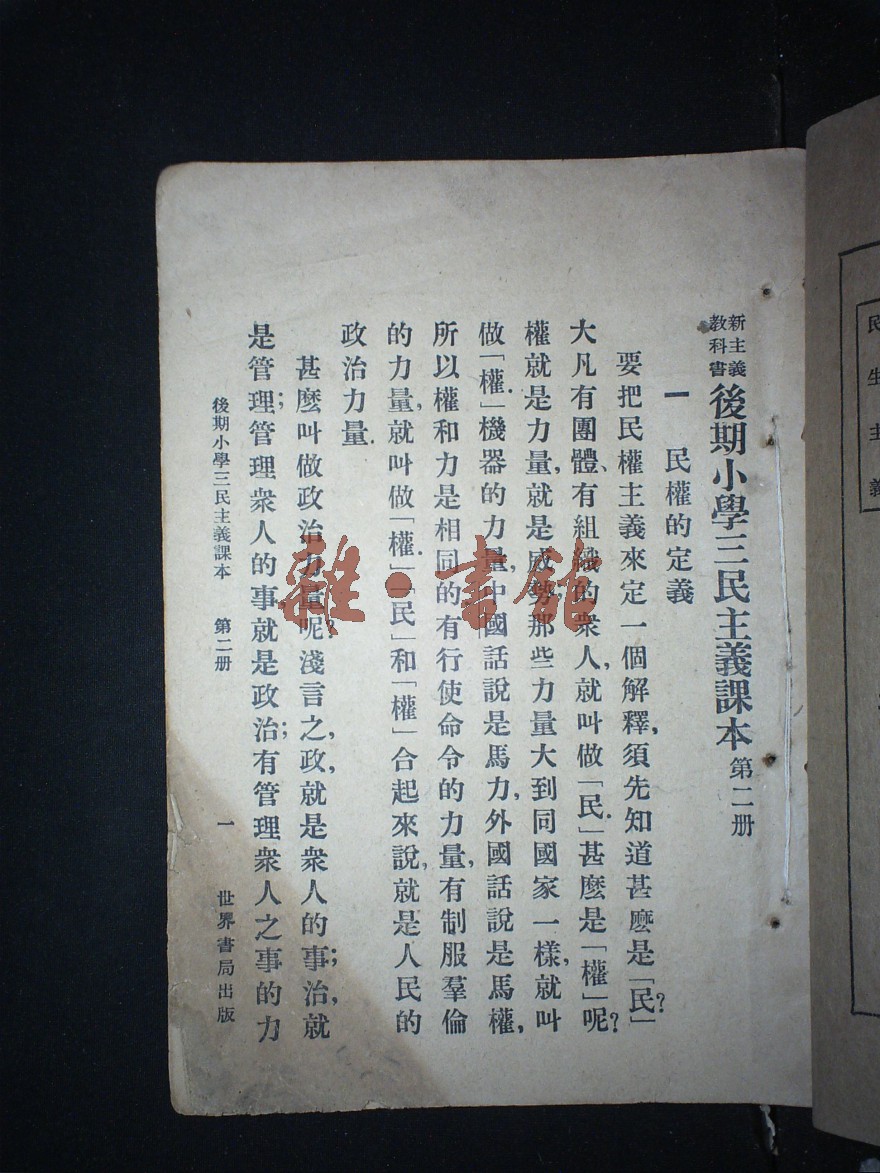 民生主義
新主義教科書 後期小學三民主義課本 第二册
一 民權的定義
要把民權主義來定一個解釋，須先知道甚麼是「民」？
大凡有團體、有組織的衆人，就叫做「民」.甚麼是「權」呢？
權就是力量，就是威勢；那些力量大到同國家一樣，就叫
做「權」.機器的力量，中國話說是馬力，外國話說是馬權，
所以權和力是相同的.有行使命令的力量，有制服羣倫
的力量，就叫做「權」.「民」和「權」合起來說，就是人民的
政治力量.
甚麼叫做政治力量呢？淺言之，政，就是衆人的事；治，就
是管理；管理衆人的事就是政治；有管理衆人之事的力
後期小學三民主義課本 第二册 一 世界書局出版
雜·書館